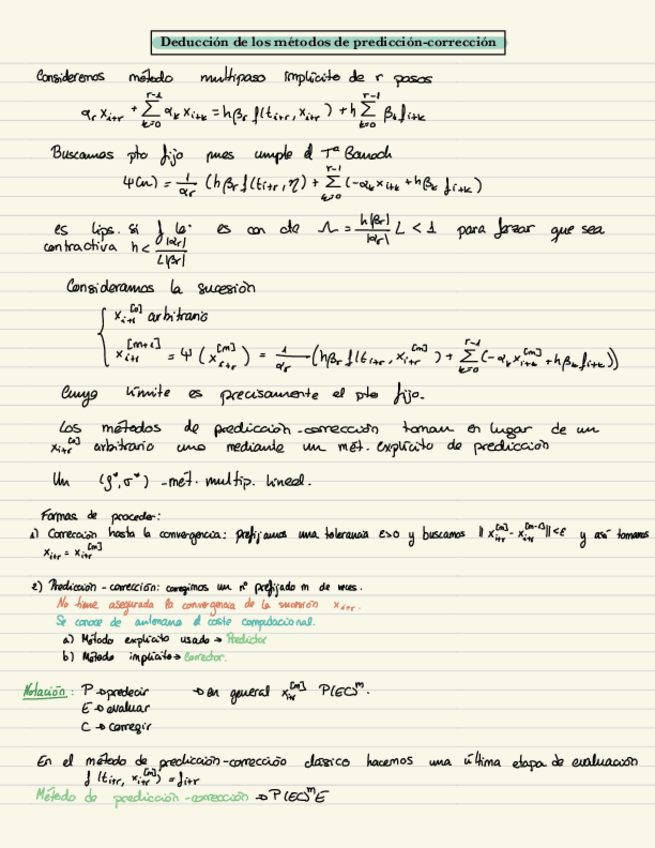 Deducción de los métodos de predicción-corrección
Consideremos método multipaso implícito de r pasos
α_r x_{i+r} + Σ_{k=0}^{r-1} α_k x_{i+k} = hβ_r f(t_{i+r}, x_{i+r}) + h Σ_{k=0}^{r-1} β_k f_{i+k}
Buscamos pto fijo pues cumple el Tª Banach
Ψ(η) = 1/α_r (hβ_r f(t_{i+r}, η) + Σ_{k=0}^{r-1} (-α_k x_{i+k} + hβ_k f_{i+k})
es lips. si f lo es con cte Λ = h|β_r|/|α_r| L < 1 para forzar que sea
contractiva h < |α_r|/L|β_r|
Consideramos la sucesión
x_{i+r}^{[0]} arbitrario
x_{i+r}^{[m+1]} = Ψ(x_{i+r}^{[m]}) = 1/α_r (hβ_r f(t_{i+r}, x_{i+r}^{[m]}) + Σ_{k=0}^{r-1} (-α_k x_{i+k}^{[m]} + hβ_k f_{i+k}))
Cuyo límite es precisamente el pto fijo.
Los métodos de predicción-corrección toman en lugar de un
x_{i+r}^{[0]} arbitrario uno mediante un mét. explícito de predicción
Un (ρ*, σ*) - mét. multip. lineal.
Formas de proceder:
1) Corrección hasta la convergencia: prefijamos una tolerancia ε>0 y buscamos ||x_{i+r}^{[m]} - x_{i+r}^{[m-1]}|| < ε y así tomamos
x_{i+r} = x_{i+r}^{[m]}
2) Predicción-corrección: corregimos un nº prefijado m de veces.
No tiene asegurada la convergencia de la sucesión x_{i+r}.
Se conoce de antemano el coste computacional.
a) Método explícito usado → Predictor
b) Método implícito → Corrector.
Notación: P → predecir → en general x_{i+r}^{[m]} P(EC)^m.
E → evaluar
C → corregir
En el método de predicción-corrección clásico hacemos una última etapa de evaluación
f(t_{i+r}, x_{i+r}^{[m]}) = f_{i+r}
Método de predicción-corrección → P(EC)^m E